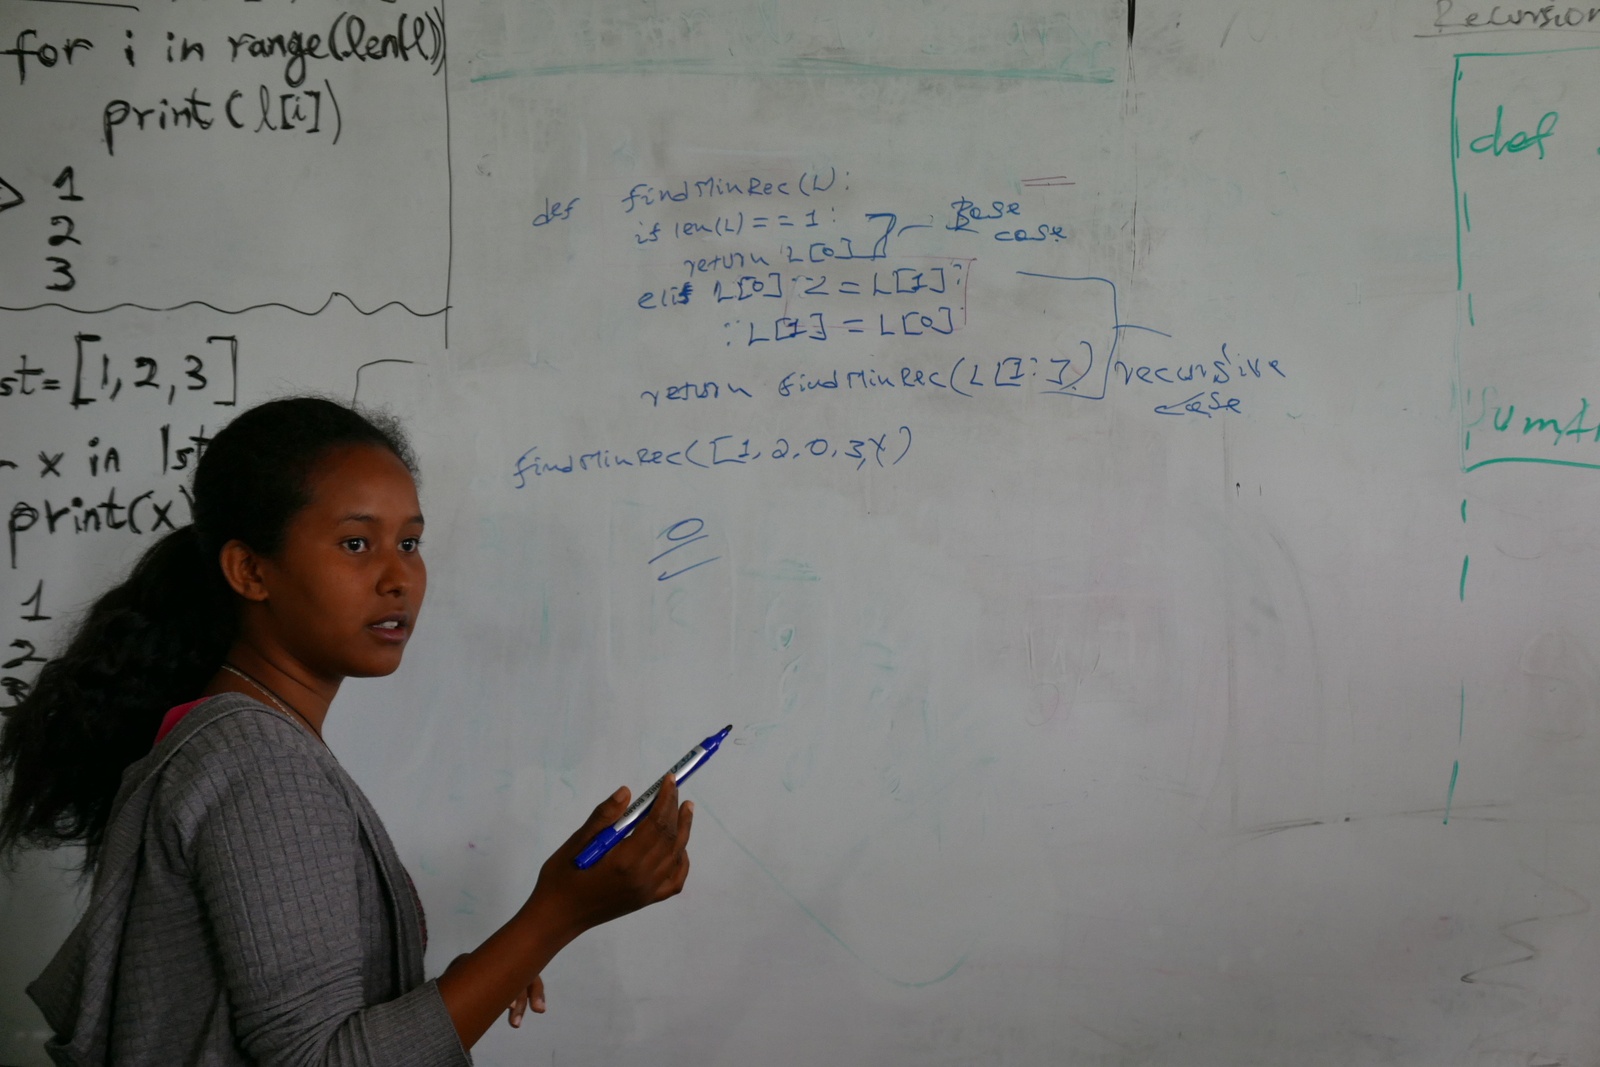 for i in range(len(l))
print(l[i])
1
2
3
st=[1,2,3]
x in lst
print(x)
1
2
3
def findMinRec(L):
if len(L)==1:
return L[0]
Base
case
elif L[0] <= L[1]:
L[1] = L[0]
return findMinRec(L[1:])
recursive
case
findMinRec([1,2,0,3,
0
Recursion
def